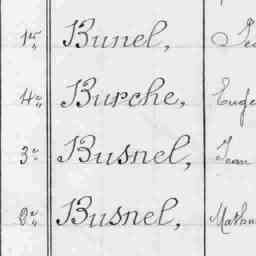 1er Bunel,
4e Burche, Euge
3e Busnel, Jean
8e Busnel, Mathu